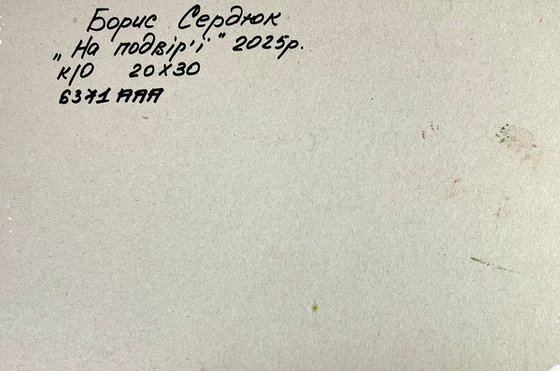 Борис Сердюк
„На подвір'ї" 2025р.
к/о 20х30
6371 ААА